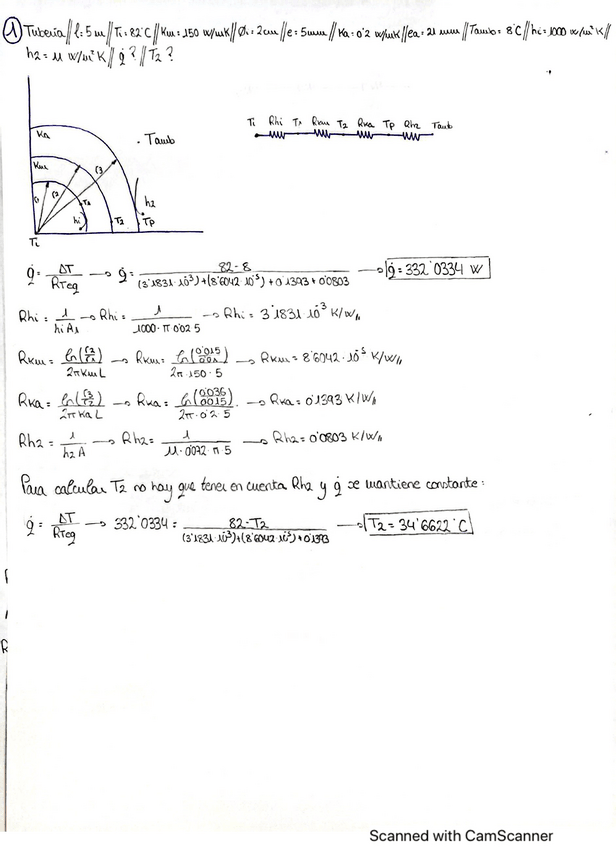 1 Tubería // l=5m // Ti=82°C // Km=150 w/mK // Øi=2cm // e=5mm // Ka=0'2 w/mK // ea=21 mm // Tamb=8°C // hi=1000 w/m²K //
h2=11 w/m²K // q̇? // T2?
Ti Rhi T1 Rkm T2 Rka Tp Rh2 Tamb
Ka
Tamb
Km
r1 r2 r3
T1
hi
T2
h2
Tp
Ti
q̇ = ΔT/RTeq → q̇ = 82-8/(3'1831·10⁻³)+(8'6042·10⁻⁵)+0'1393+0'0803 → q̇=332'0334 W
Rhi = 1/hiA1 → Rhi = 1/1000·π·0'02·5 → Rhi = 3'1831·10⁻³ K/W//
Rkm = ln(r2/r1)/2πKmL → Rkm = ln(0'015/0'01)/2π·150·5 → Rkm = 8'6042·10⁻⁵ K/W//
Rka = ln(r3/r2)/2πKaL → Rka = ln(0'036/0'015)/2π·0'2·5 → Rka = 0'1393 K/W//
Rh2 = 1/h2A → Rh2 = 1/11·0'072·π·5 → Rh2 = 0'0803 K/W//
Para calcular T2 no hay que tener en cuenta Rh2 y q̇ se mantiene constante:
q̇ = ΔT/RTeq → 332'0334 = 82-T2/(3'1831·10⁻³)+(8'6042·10⁻⁵)+0'1393 → T2=34'6622°C
R
Scanned with CamScanner